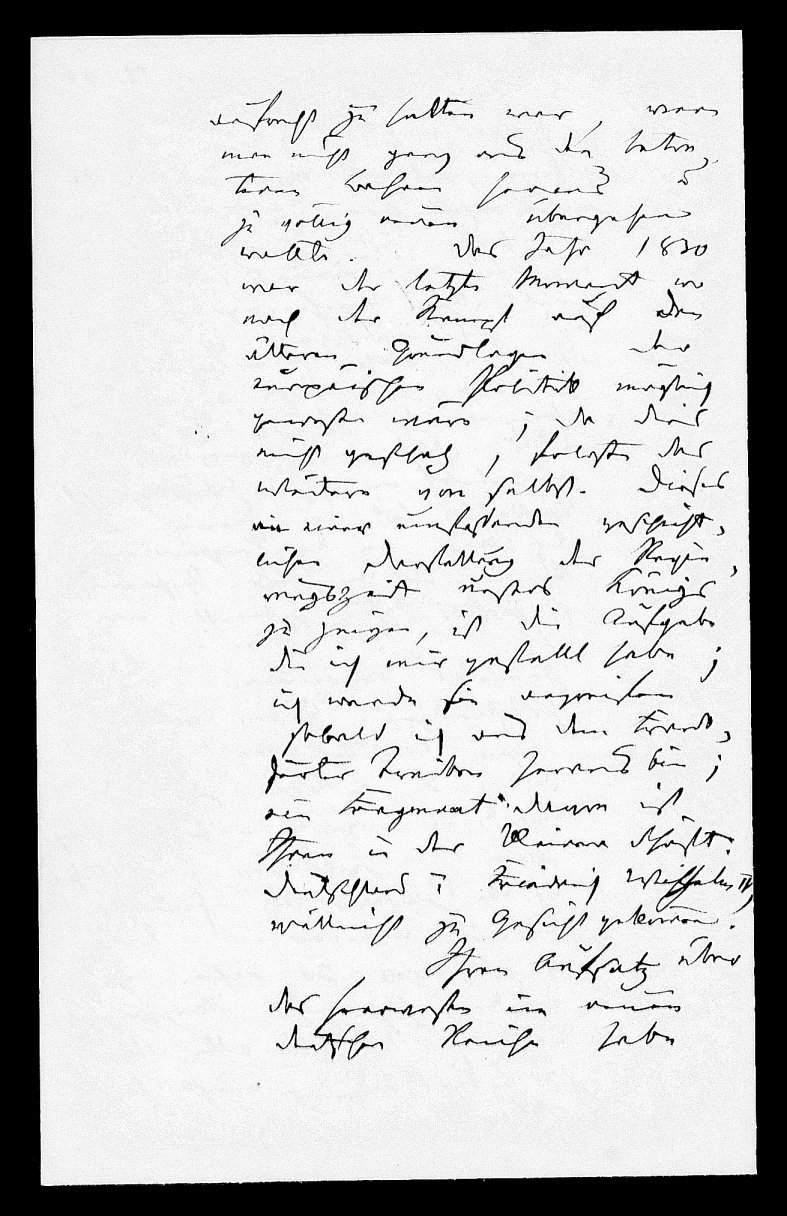 aufrecht zu halten war, wenn
man nicht ganz aus den
heraus u
zu völlig neuen übergehen
wollte. Das Jahr 1830
war der letzte Moment wo
noch der Kampf auf den
älteren Grundlagen der
europäischen Politik möglich
gewesen wäre; da dies
nicht geschah, folgte das
Weitere von selbst. Dieses
in einer umfassenden geschicht-
lichen Darstellung der Regie-
rungszeit unseres Königs
zu zeigen, ist die Aufgabe
die ich mir gestellt habe;
ich werde sie
sobald ich aus dem
Treiben heraus bin;
ein Fragment davon ist
Ihnen in der kleinen Schrift:
Deutschland u Friedrich Wilhelm IV,
vielleicht zu Gesicht gekommen.
Ihren Aufsatz über
das Heerwesen im neuen
deutschen Reiche habe